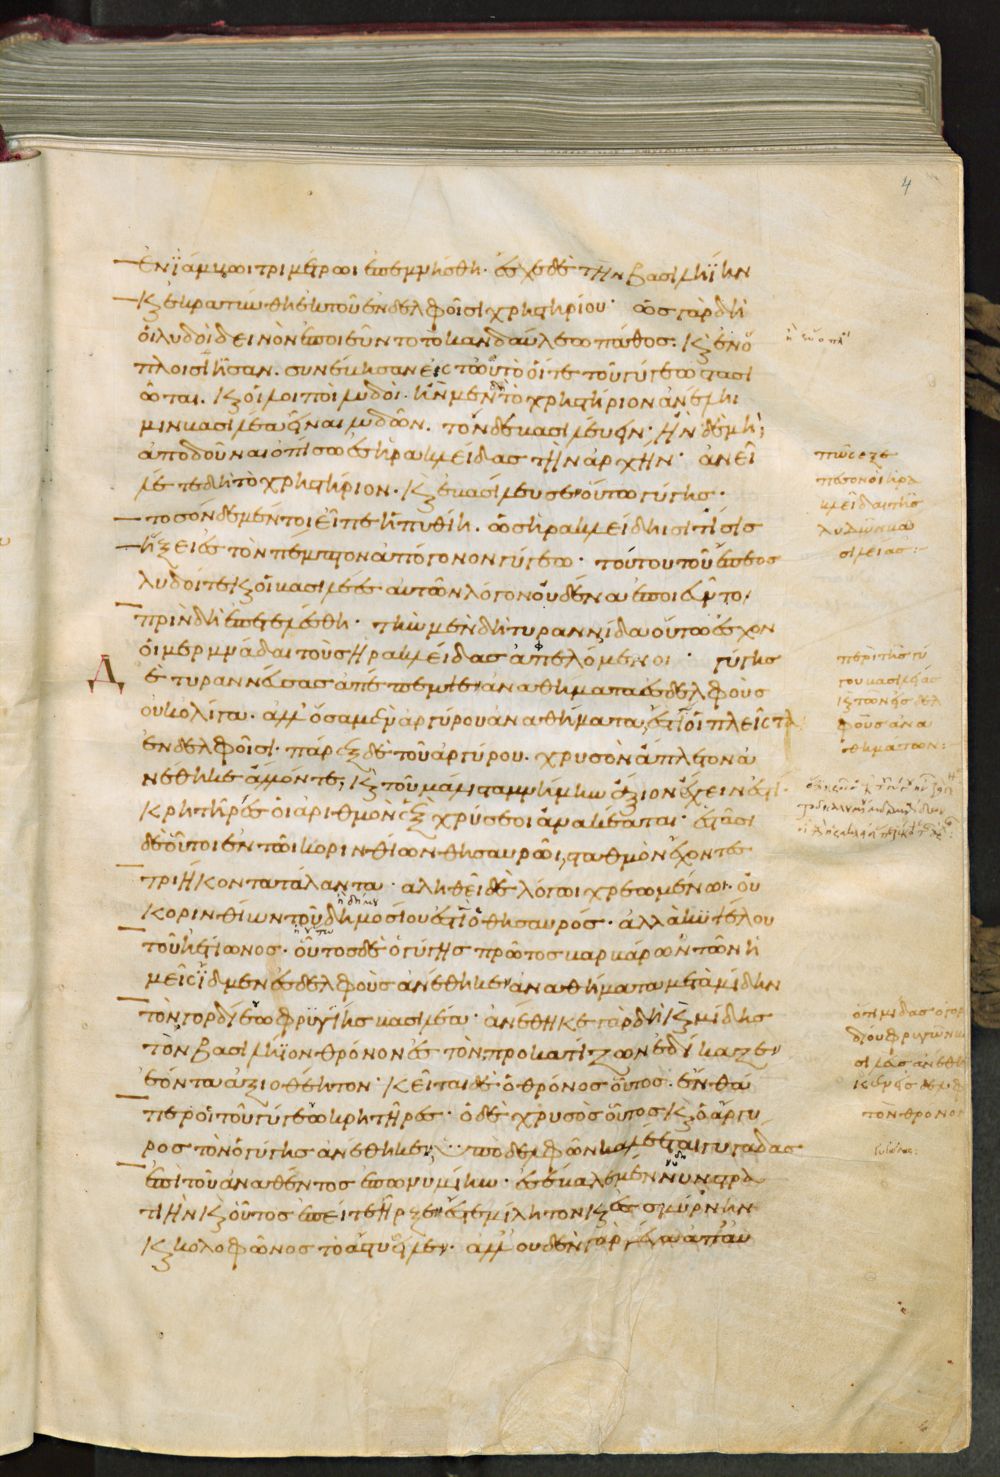 4
ἐν ἰάμβωι τριμέτρωι ἐπεμνήσθη· ἔσχε δὲ τὴν βασιληΐην
κ(αὶ) ἐκρατύνθη ἐκ τοῦ ἐν δελφοῖσι χρηστηρίου· ὡς γὰρ δὴ
οἱ λυδοὶ δεινὸν ἐποιεῦντο τὸ κανδαύλεω πάθος. κ(αὶ) ἐν ὅ
πλοισι ἦσαν. συνέβησαν ἐς τὠυτὸ οἵ τε τοῦ γύγεω στασι
ῶται. κ(αὶ) οἱ λοιποὶ λυδοὶ. ἢν μὲν δὴ τὸ χρηστήριον ἀνέλῃ
μιν βασιλέα εἶναι λυδῶν. τὸν δὲ βασιλεύειν· ἢν δὲ μὴ;
ἀποδοῦναι ὀπίσω ἐς ἡρακλείδας τὴν ἀρχήν· ἀνεῖ
λέ τε δὴ τὸ χρηστήριον. κ(αὶ) ἐβασίλευσεν οὕτω γύγης.
τοσόνδε μέντοι εἶπε ἡ πυθίη. ὡς ἡρακλείδηισι τίσις
ἥξει ἐς τὸν πέμπτον ἀπόγονον γύγεω· τούτου τοῦ ἔπεος
λυδοί τε κ(αὶ) οἱ βασιλέες αὐτῶν λόγον οὐδένα ἐποιεῦντο.
πρὶν δὴ ἐπετελέσθη· τὴν μὲν δὴ τυραννίδα οὕτω ἔσχον
οἱ μερμνάδαι τοὺς ἡρακλείδας ἀπελόμενοι· γύγης
δὲ τυραννεύσας ἀπέπεμπεν ἀναθήματα ἐς δελφοὺς
οὐκ ὀλίγα. ἀλλ' ὅσα μὲν ἀργύρου ἀναθήματα, ἔστι οἱ πλεῖστα
ἐν δελφοῖσι· πάρεξ δὲ τοῦ ἀργύρου. χρυσὸν ἄπλετον ἀ
νέθηκε ἄλλόν τε; κ(αὶ) τοῦ μάλιστα μνήμην ἄξιον ἔχειν ἐστὶ.
κρητῆρές οἱ ἀριθμὸν ἓξ χρύσεοι ἀνακέαται. ἑστᾶσι
δὲ οὗτοι ἐν τῶι κορινθίων θησαυρῶι, σταθμὸν ἔχοντες
τριήκοντα τάλαντα· ἀληθεῖ δὲ λόγωι χρεωμένωι. οὐ
κορινθίων τοῦ δημοσίου ἐστὶ ὁ θησαυρός. ἀλλὰ κυψέλου
τοῦ ἠετίωνος. οὗτος δὲ ὁ γύγης πρῶτος βαρβάρων τῶν ἡ
μεῖς ἴδμεν ἐς δελφοὺς ἀνέθηκεν ἀναθήματα μετὰ μίδην
τὸν γορδίεω φρυγίης βασιλέα· ἀνέθηκε γὰρ δὴ κ(αὶ) μίδης
τὸν βασιλήϊον θρόνον ἐς τὸν προκατίζων ἐδίκαζεν
ἐόντα ἀξιοθέητον· κεῖται δὲ ὁ θρόνος οὗτος. ἔνθα
περ οἱ τοῦ γύγεω κρητῆρες· ὁ δὲ χρυσὸς οὗτος κ(αὶ) ὁ ἄργυ
ρος τὸν ὁ γύγης ἀνέθηκεν, ὑπὸ δελφῶν καλέεται γυγάδας
ἐπὶ τοῦ ἀναθέντος ἐπωνυμίην· ἐσέβαλε μέν νυν στρα
τιὴν κ(αὶ) οὗτος ἐπεί τε ἦρξεν ἔς τε μίλητον κ(αὶ) ἐς σμύρνην
κ(αὶ) κολοφῶνος τὸ ἄστυ εἷλεν. ἀλλ' οὐδὲν γὰρ μέγα ἀπ' αὐ
πῶς ἔχε
πεσον οἱ ἡρα
κλεῖδαι τῆς
λυδῶν βα
σιλείας:
περὶ τῆς γύ
γου βασιλείας
κ(αὶ) τῶν ἐς δελ
φοὺς ἀνα
θημάτων:
ὅτι μίδας ὁ γορ
δίου φρυγῶν βα
σιλεὺς ἀνέθη
κεν ἐς δελφ
τὸν θρόνον